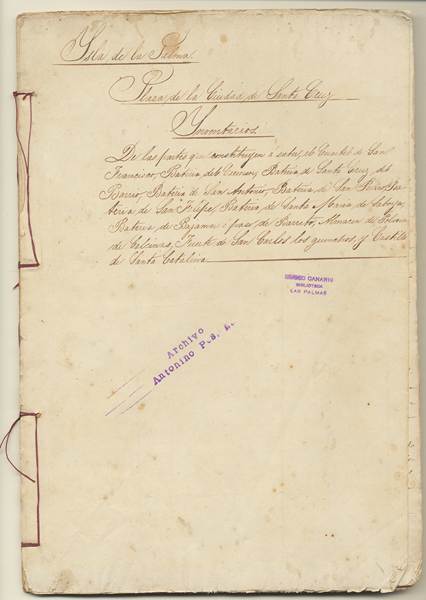 Ysla de la Palma.
Plaza de la Ciudad de Santa Cruz
Ynventarios
De las partes que constituyen á saber, el Cuartel de San
Francisco, Bateria del Carmen, Bateria de Santa Cruz del
Barrio, Bateria de San Antonio, Bateria de San Pedro, Ba-
teria de San Felipe, Bateria de Santa
Bateria de Bajamar, de Barreto, Almacen de Polvora
de Calcinas, Fuerte de San Carlos los guinchos, y Castillo
de Santa Catalina
MUSEO CANARIO
BIBLIOTECA
LAS PALMAS
Archivo
Antonino